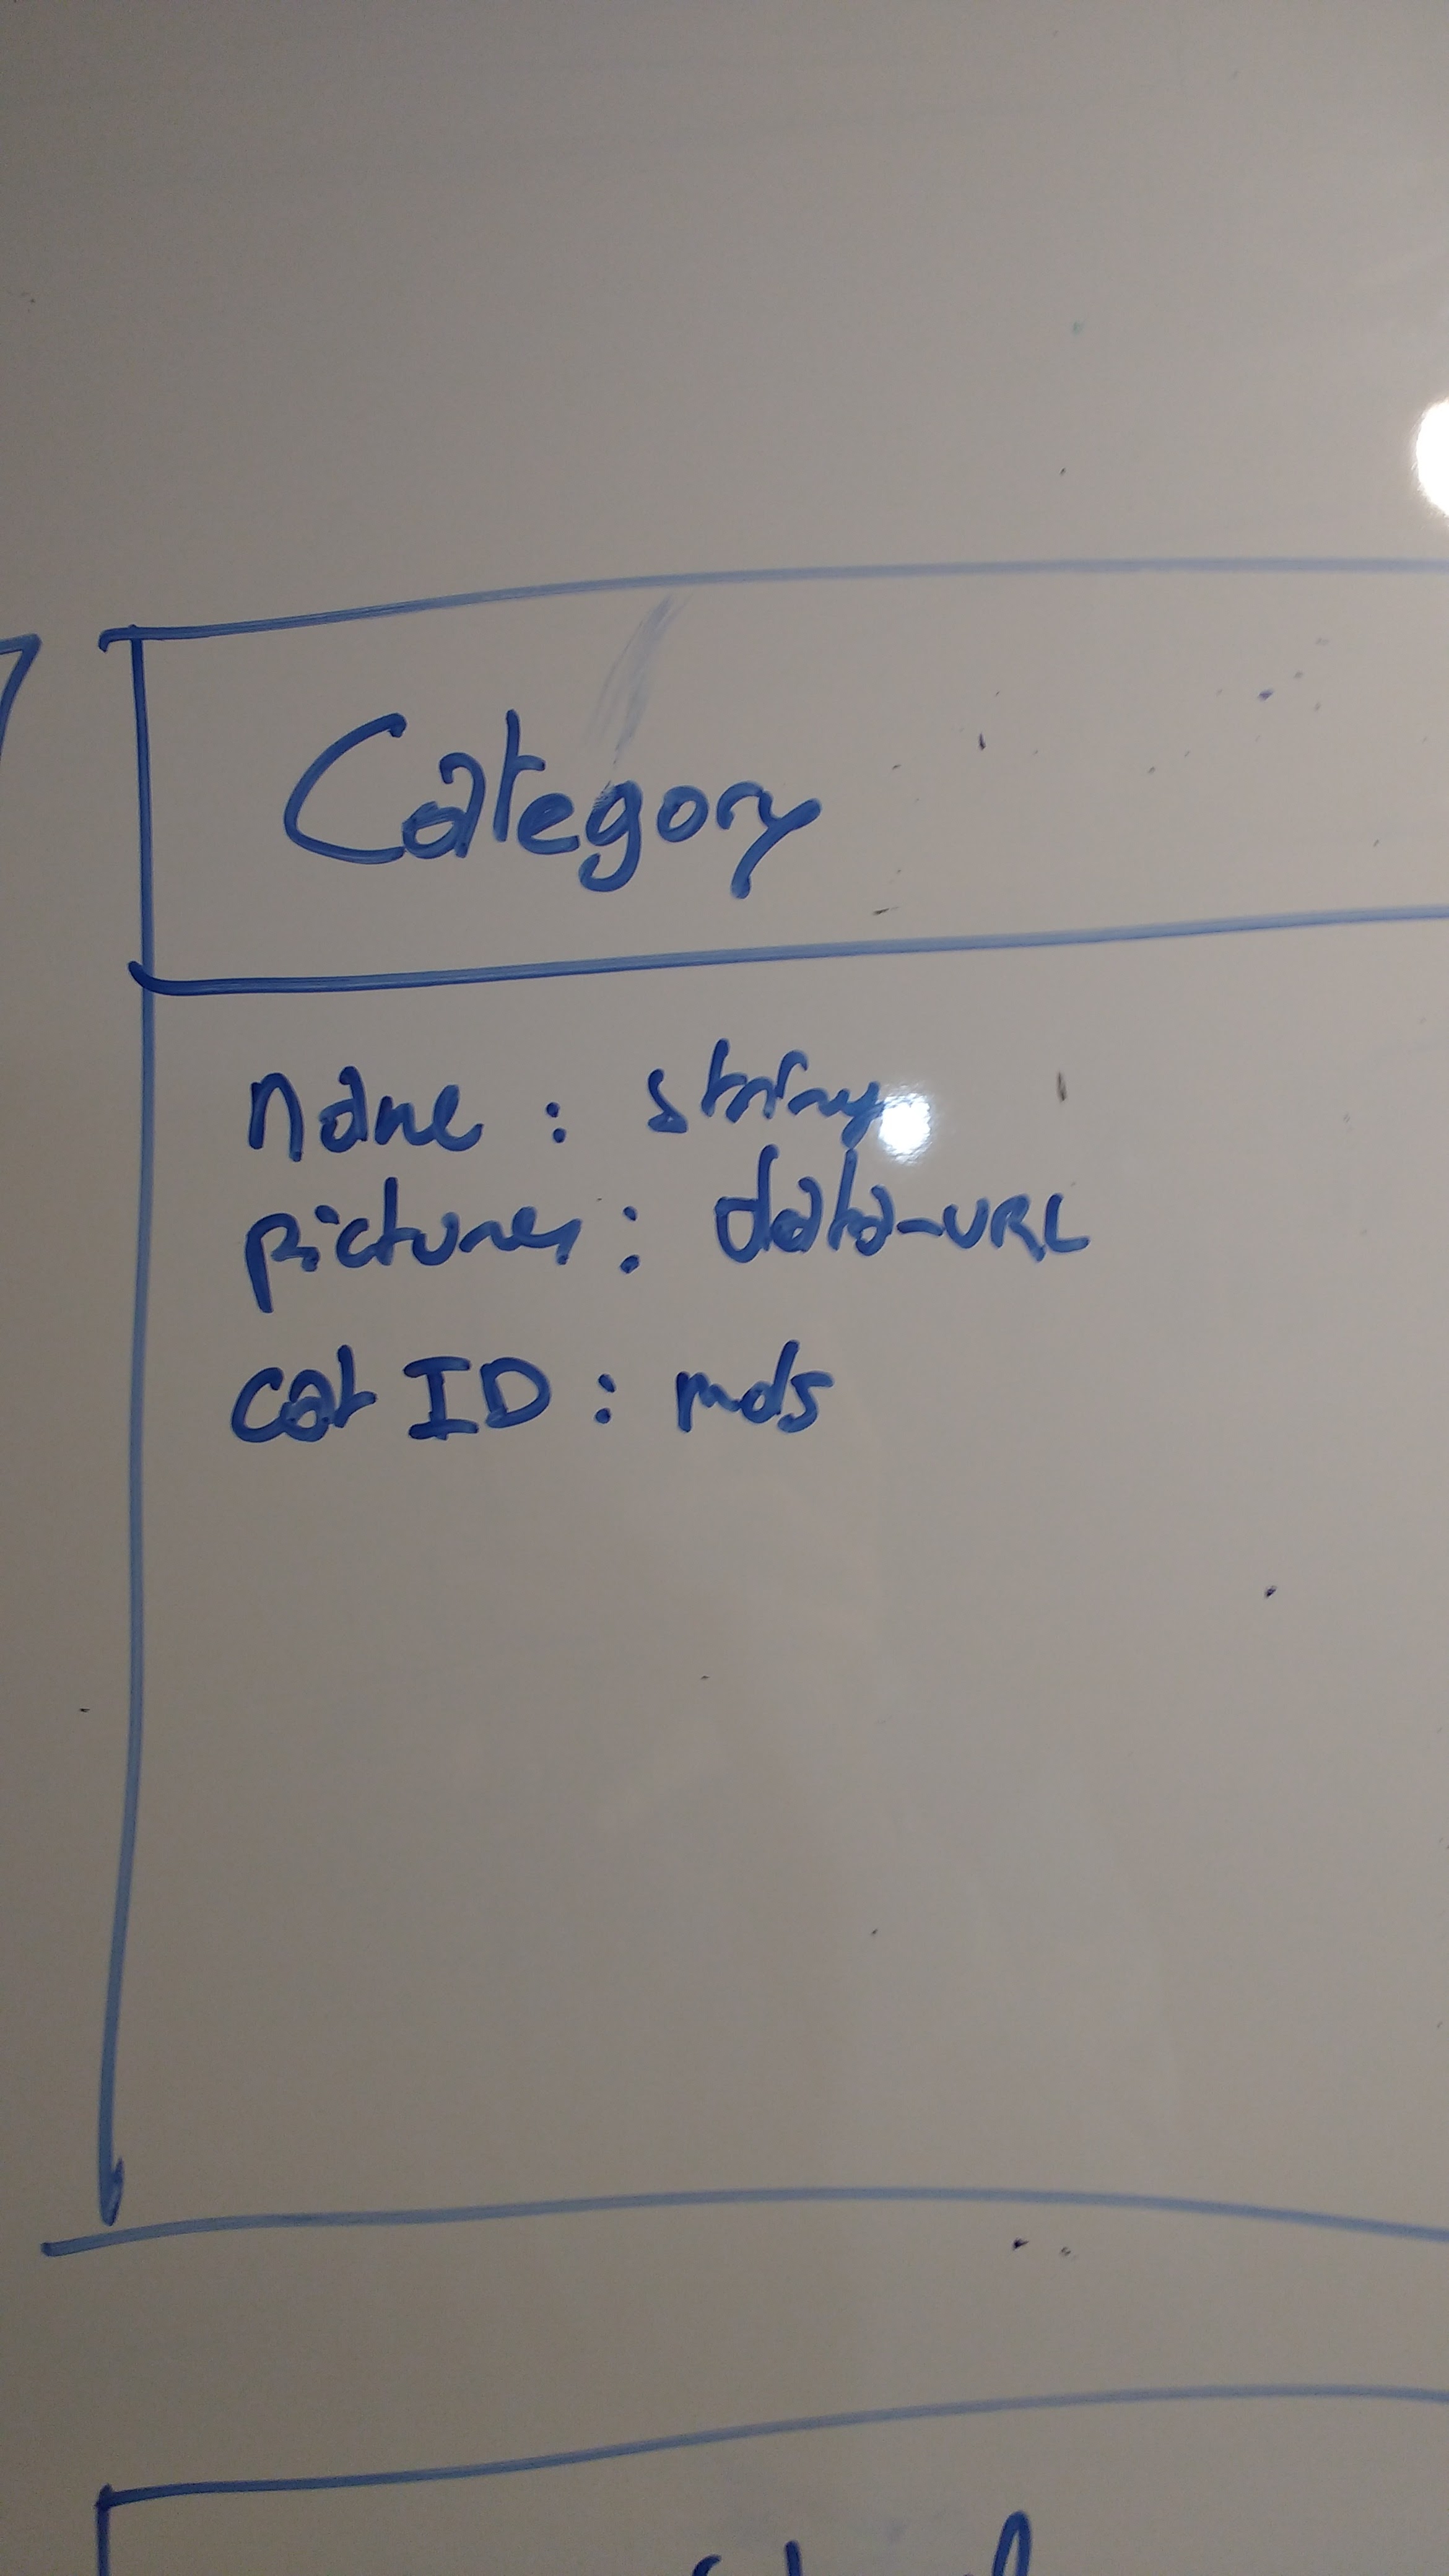 Category
name : string
pictures : data-URL
cat ID : md5